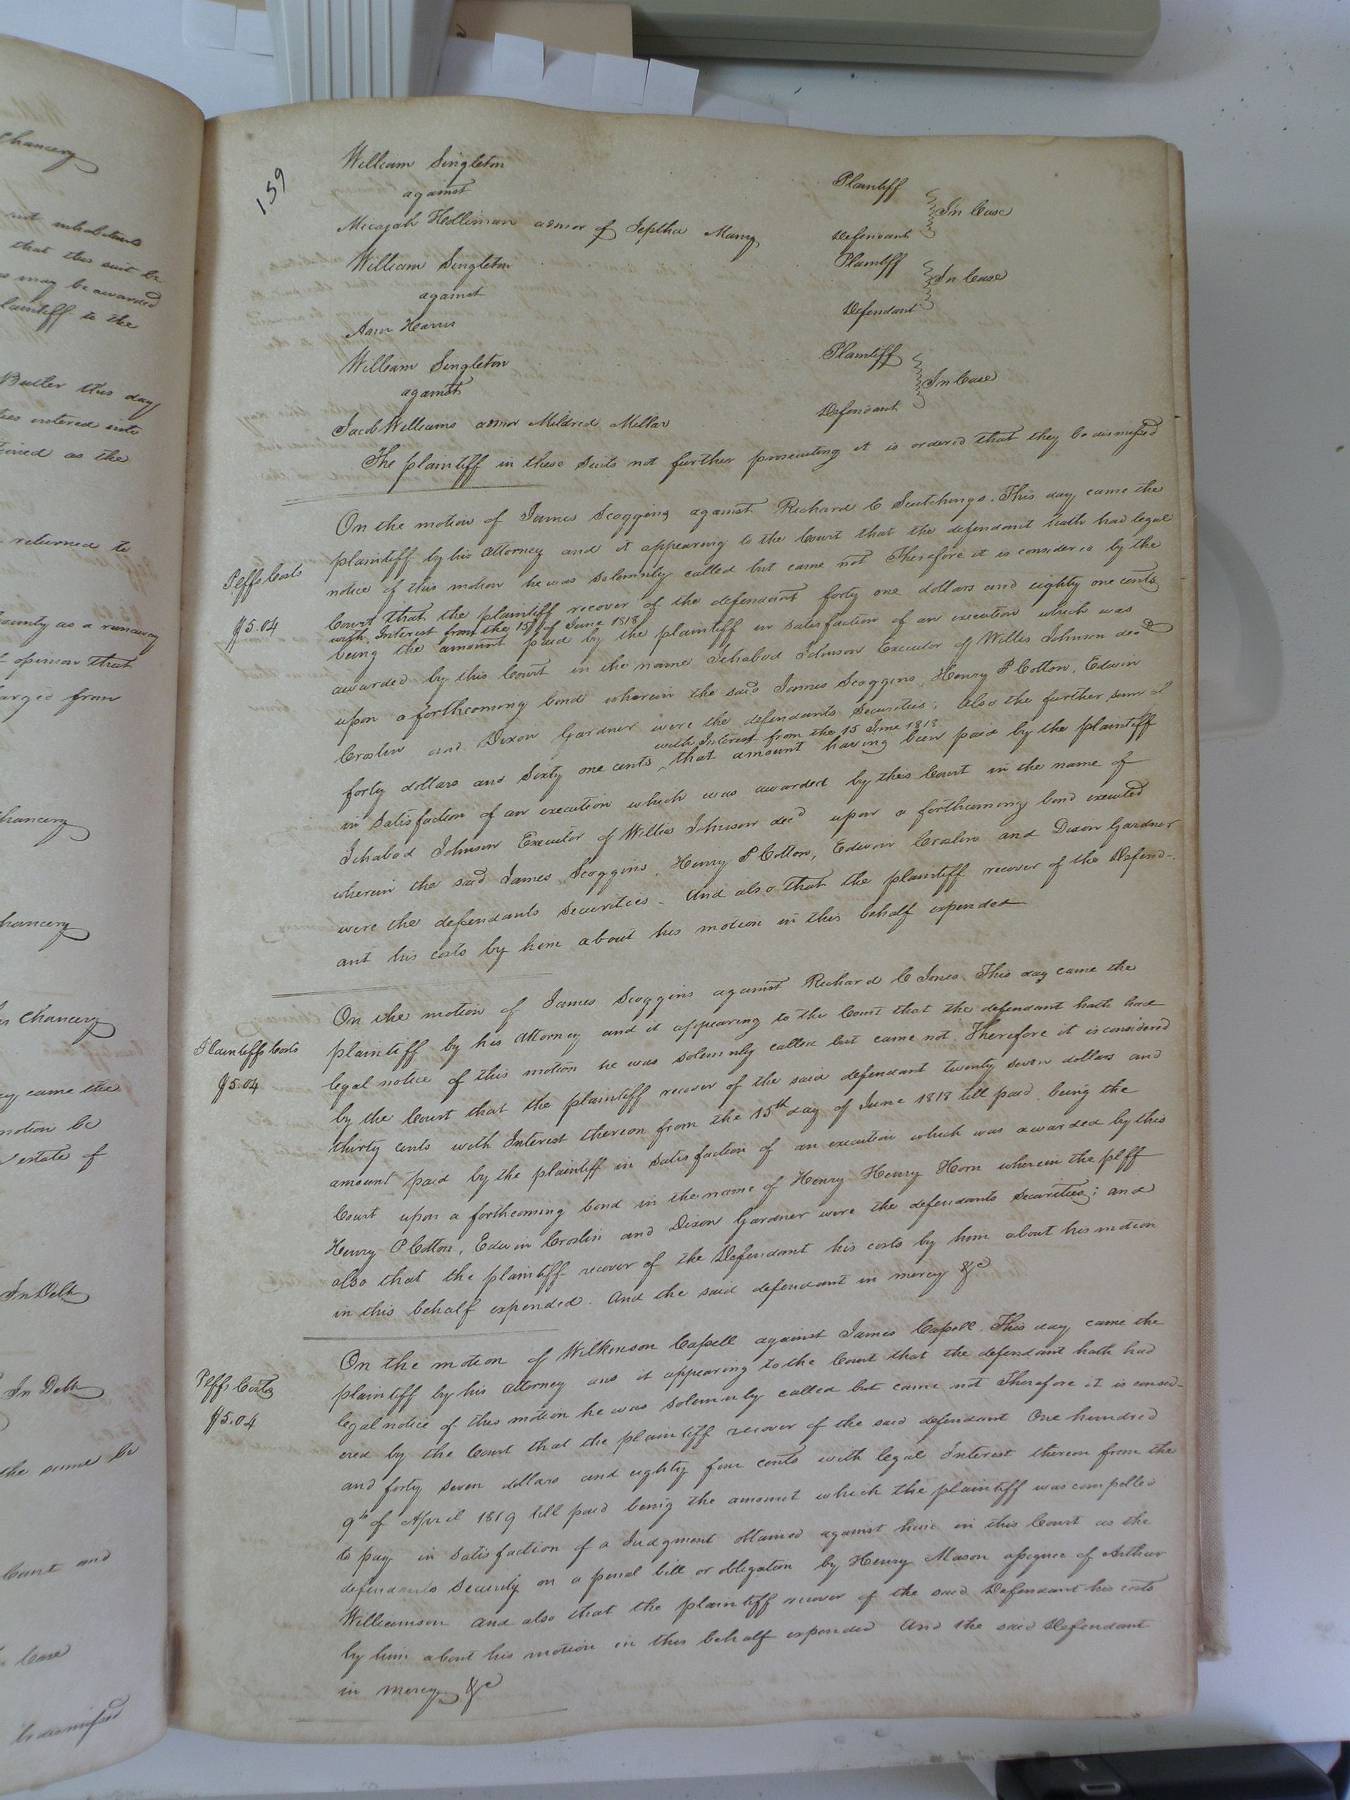 159
William Singleton Plaintiff
against In Case
Micajah Holliman admor of Jeptha Many Defendant
William Singleton Plaintiff
against In Case
Ann Harris Defendant
William Singleton Plaintiff
against In Case
Jacob Williams admor Mildred Millar Defendant
The plaintiff in these Suits not further prosecuting it is ordered that they be dismissed
On the motion of James Scoggins against Richard C Scutchings. This day came the
plaintiff by his attorney and it appearing to the Court that the defendant hath had legal
Plffs Costs
notice of this motion he was solemnly called but came not Therefore it is considered by the
Court that the plaintiff recover of the defendant forty one dollars and eighty one cents
$5.04
with Interest from the 15 of June 1818
being the amount paid by the plaintiff in satisfaction of an execution which was
awarded by this Court in the name Ichabod Johnson Executor of Willis Johnson decd
upon a forthcoming bond wherein the said James Scoggins, Henry P Cotton, Edwin
Croslin and Dixon Gardner were the defendants Securities; also the further sum of
with Interest from the 15 June 1818
forty dollars and Sixty one cents, that amount having been paid by the plaintiff
in satisfaction of an execution which was awarded by this Court in the name of
Ichabod Johnson Executor of Willis Johnson decd upon a forthcoming bond executed
wherein the said James Scoggins, Henry P Cotton, Edwin Croslin and Dixon Gardner
were the defendants Securities - And also that the plaintiff recover of the Defend-
ant his costs by him about his motion in this behalf expended
On the motion of James Scoggins against Richard C Jones This day came the
plaintiff by his attorney and it appearing to the Court that the defendant hath had
Plaintiffs Costs
legal notice of this motion he was solemnly called but came not. Therefore it is considered
$5.04
by the Court that the plaintiff recover of the said defendant twenty seven dollars and
thirty cents with Interest thereon from the 15th day of June 1818 till paid being the
amount paid by the plaintiff in satisfaction of an execution which was awarded by this
Court upon a forthcoming bond in the name of Henry Henry Horn wherein the plff
Henry P Cotton, Edwin Croslin and Dixon Gardner were the defendants Securities; and
also that the plaintiff recover of the Defendant his costs by him about his motion
in this behalf expended. And the said defendant in mercy &c
On the motion of Wilkinson Capell against James Capell This day came the
plaintiff by his attorney and it appearing to the Court that the defendant hath had
Plffs Costs
legal notice of this motion he was solemnly called but came not Therefore it is consid-
$5.04
ered by the Court that the plaintiff recover of the said defendant One hundred
and forty seven dollars and eighty four cents with legal Interest thereon from the
9th of April 1819 till paid being the amount which the plaintiff was compelled
to pay in satisfaction of a Judgment obtained against him in this Court as the
defendants Security on a penal bill or obligation by Henry Mason assignee of Arthur
Williamson and also that the plaintiff recover of the said Defendant his costs
by him about his motion in this behalf expended And the said Defendant
in mercy &c